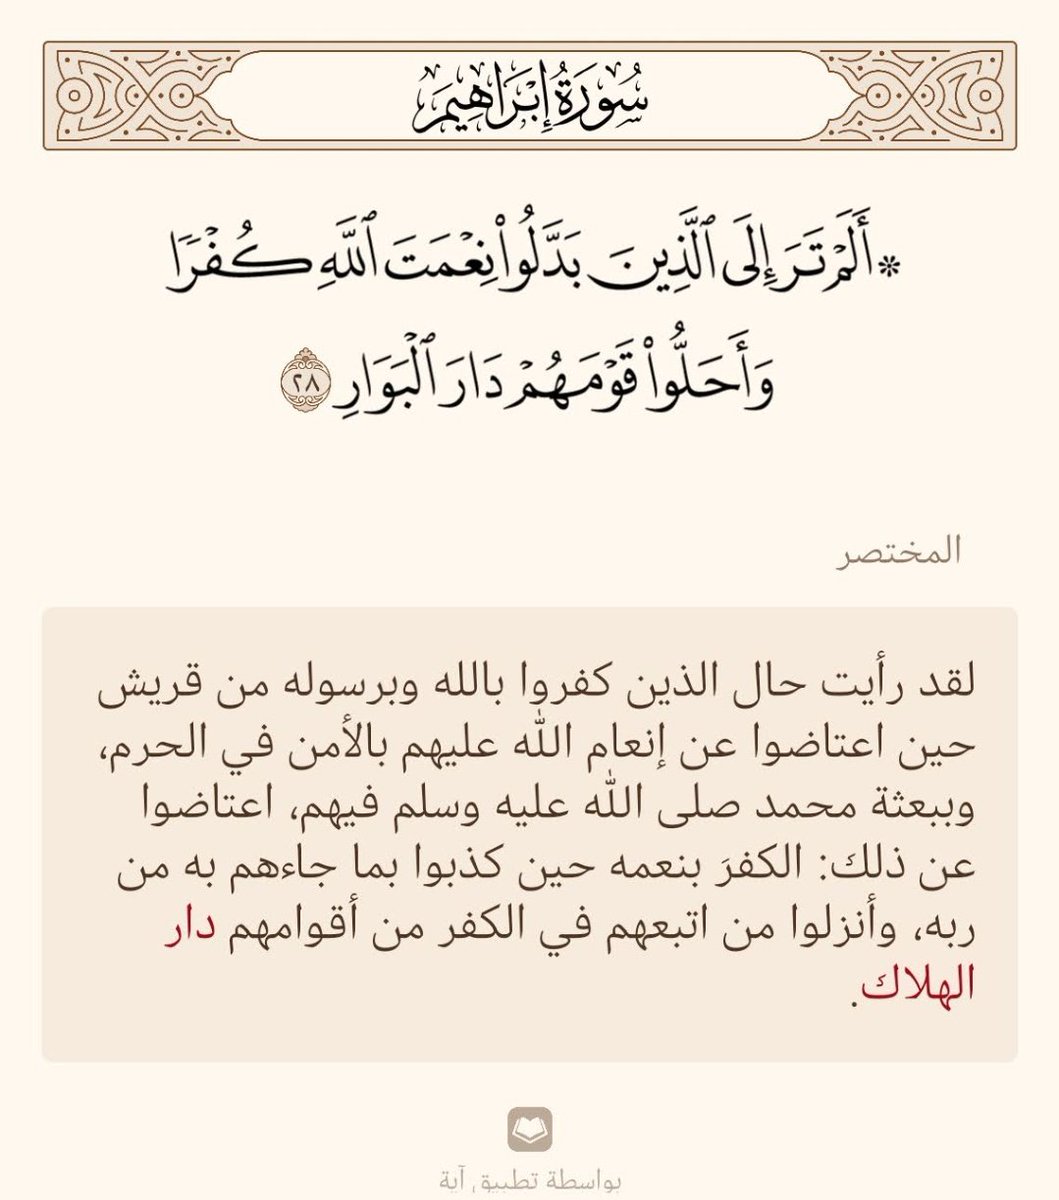 سُورَةُ إِبْرَاهِيمَ
* أَلَمْ تَرَ إِلَى ٱلَّذِينَ بَدَّلُواْ نِعْمَتَ ٱللَّهِ كُفْرًا
وَأَحَلُّواْ قَوْمَهُمْ دَارَ ٱلْبَوَارِ ٢٨
المختصر
لقد رأيت حال الذين كفروا بالله وبرسوله من قريش
حين اعتاضوا عن إنعام الله عليهم بالأمن في الحرم،
وببعثة محمد صلى الله عليه وسلم فيهم، اعتاضوا
عن ذلك: الكفرَ بنعمه حين كذبوا بما جاءهم به من
ربه، وأنزلوا من اتبعهم في الكفر من أقوامهم دار
الهلاك.
بواسطة تطبيق آية